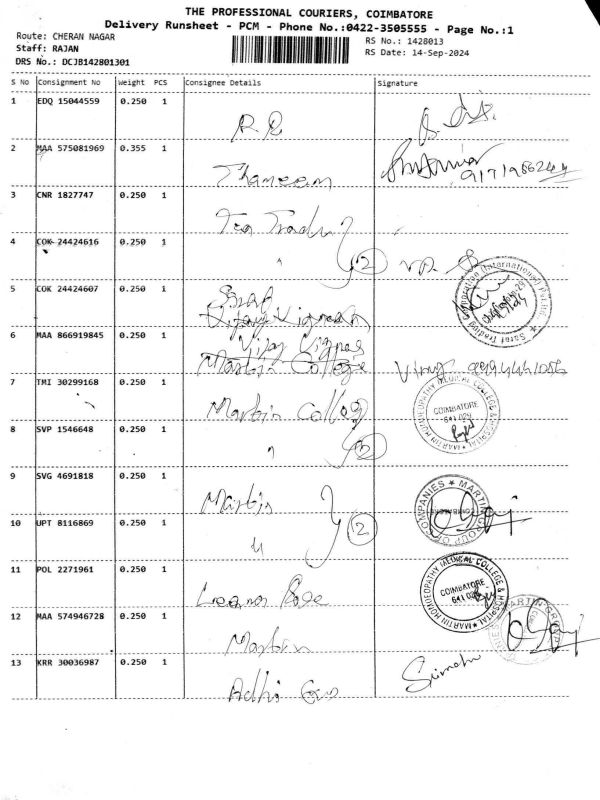 THE PROFESSIONAL COURIERS, COIMBATORE
Delivery Runsheet - PCM - Phone No.:0422-3505555 - Page No.:1
Route: CHERAN NAGAR
Staff: RAJAN
DRS No.: DCJB142801301
RS No.: 1428013
RS Date: 14-Sep-2024
S No Consignment No Weight PCS Consignee Details Signature
1 EDQ 15044559 0.250 1
2 MAA 575081969 0.355 1 Thameem
3 CNR 1827747 0.250 1
4 COK 24424616 0.250 1 " 2
5 COK 24424607 0.250 1
6 MAA 866919845 0.250 1 Martin College
7 TMI 30299168 0.250 1 Martin College
COIMBATORE
641 029
MARTIN HOMOEOPATHY MEDICAL COLLEGE & HOSPITAL
8 SVP 1546648 0.250 1 " 2
9 SVG 4691818 0.250 1 Martin
MARTIN GROUP OF COMPANIES
10 UPT 8116869 0.250 1 " 2
11 POL 2271961 0.250 1
COIMBATORE
641 029
MARTIN HOMOEOPATHY MEDICAL COLLEGE & HOSPITAL
12 MAA 574946728 0.250 1 Martin
13 KRR 30036987 0.250 1 Adhi